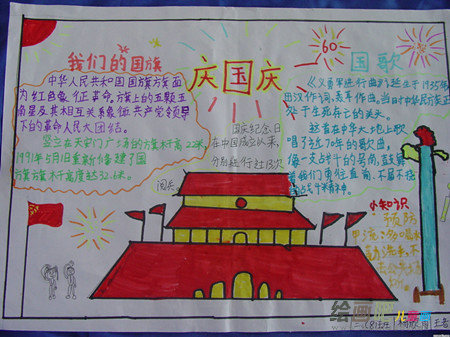 我们的国旗
中华人民共和国国旗旗面
为红色象征革命,旗上的五颗五
角星及其相互关系象征共产党领导
下的革命人民大团结。
竖立在天安门广场的旗杆高22米,
1991年5月1日重新修建了国
旗旗杆高度达32.6米。
庆国庆
国庆纪念日
在中国成立以来,
分别进行过13次
阅兵。
60
国歌
《义勇军进行曲》诞生于1935年
田汉作词,聂耳作曲,当时中华民族正
处于生死存亡的关头。
这首在中华大地上歌
唱了近70年的歌曲,
像一支战斗的号角,鼓舞
着我们勇往直前、不屈不挠
的战斗精神。
小知识
预防
甲流
多喝
勤洗手,不
绘画
儿童网